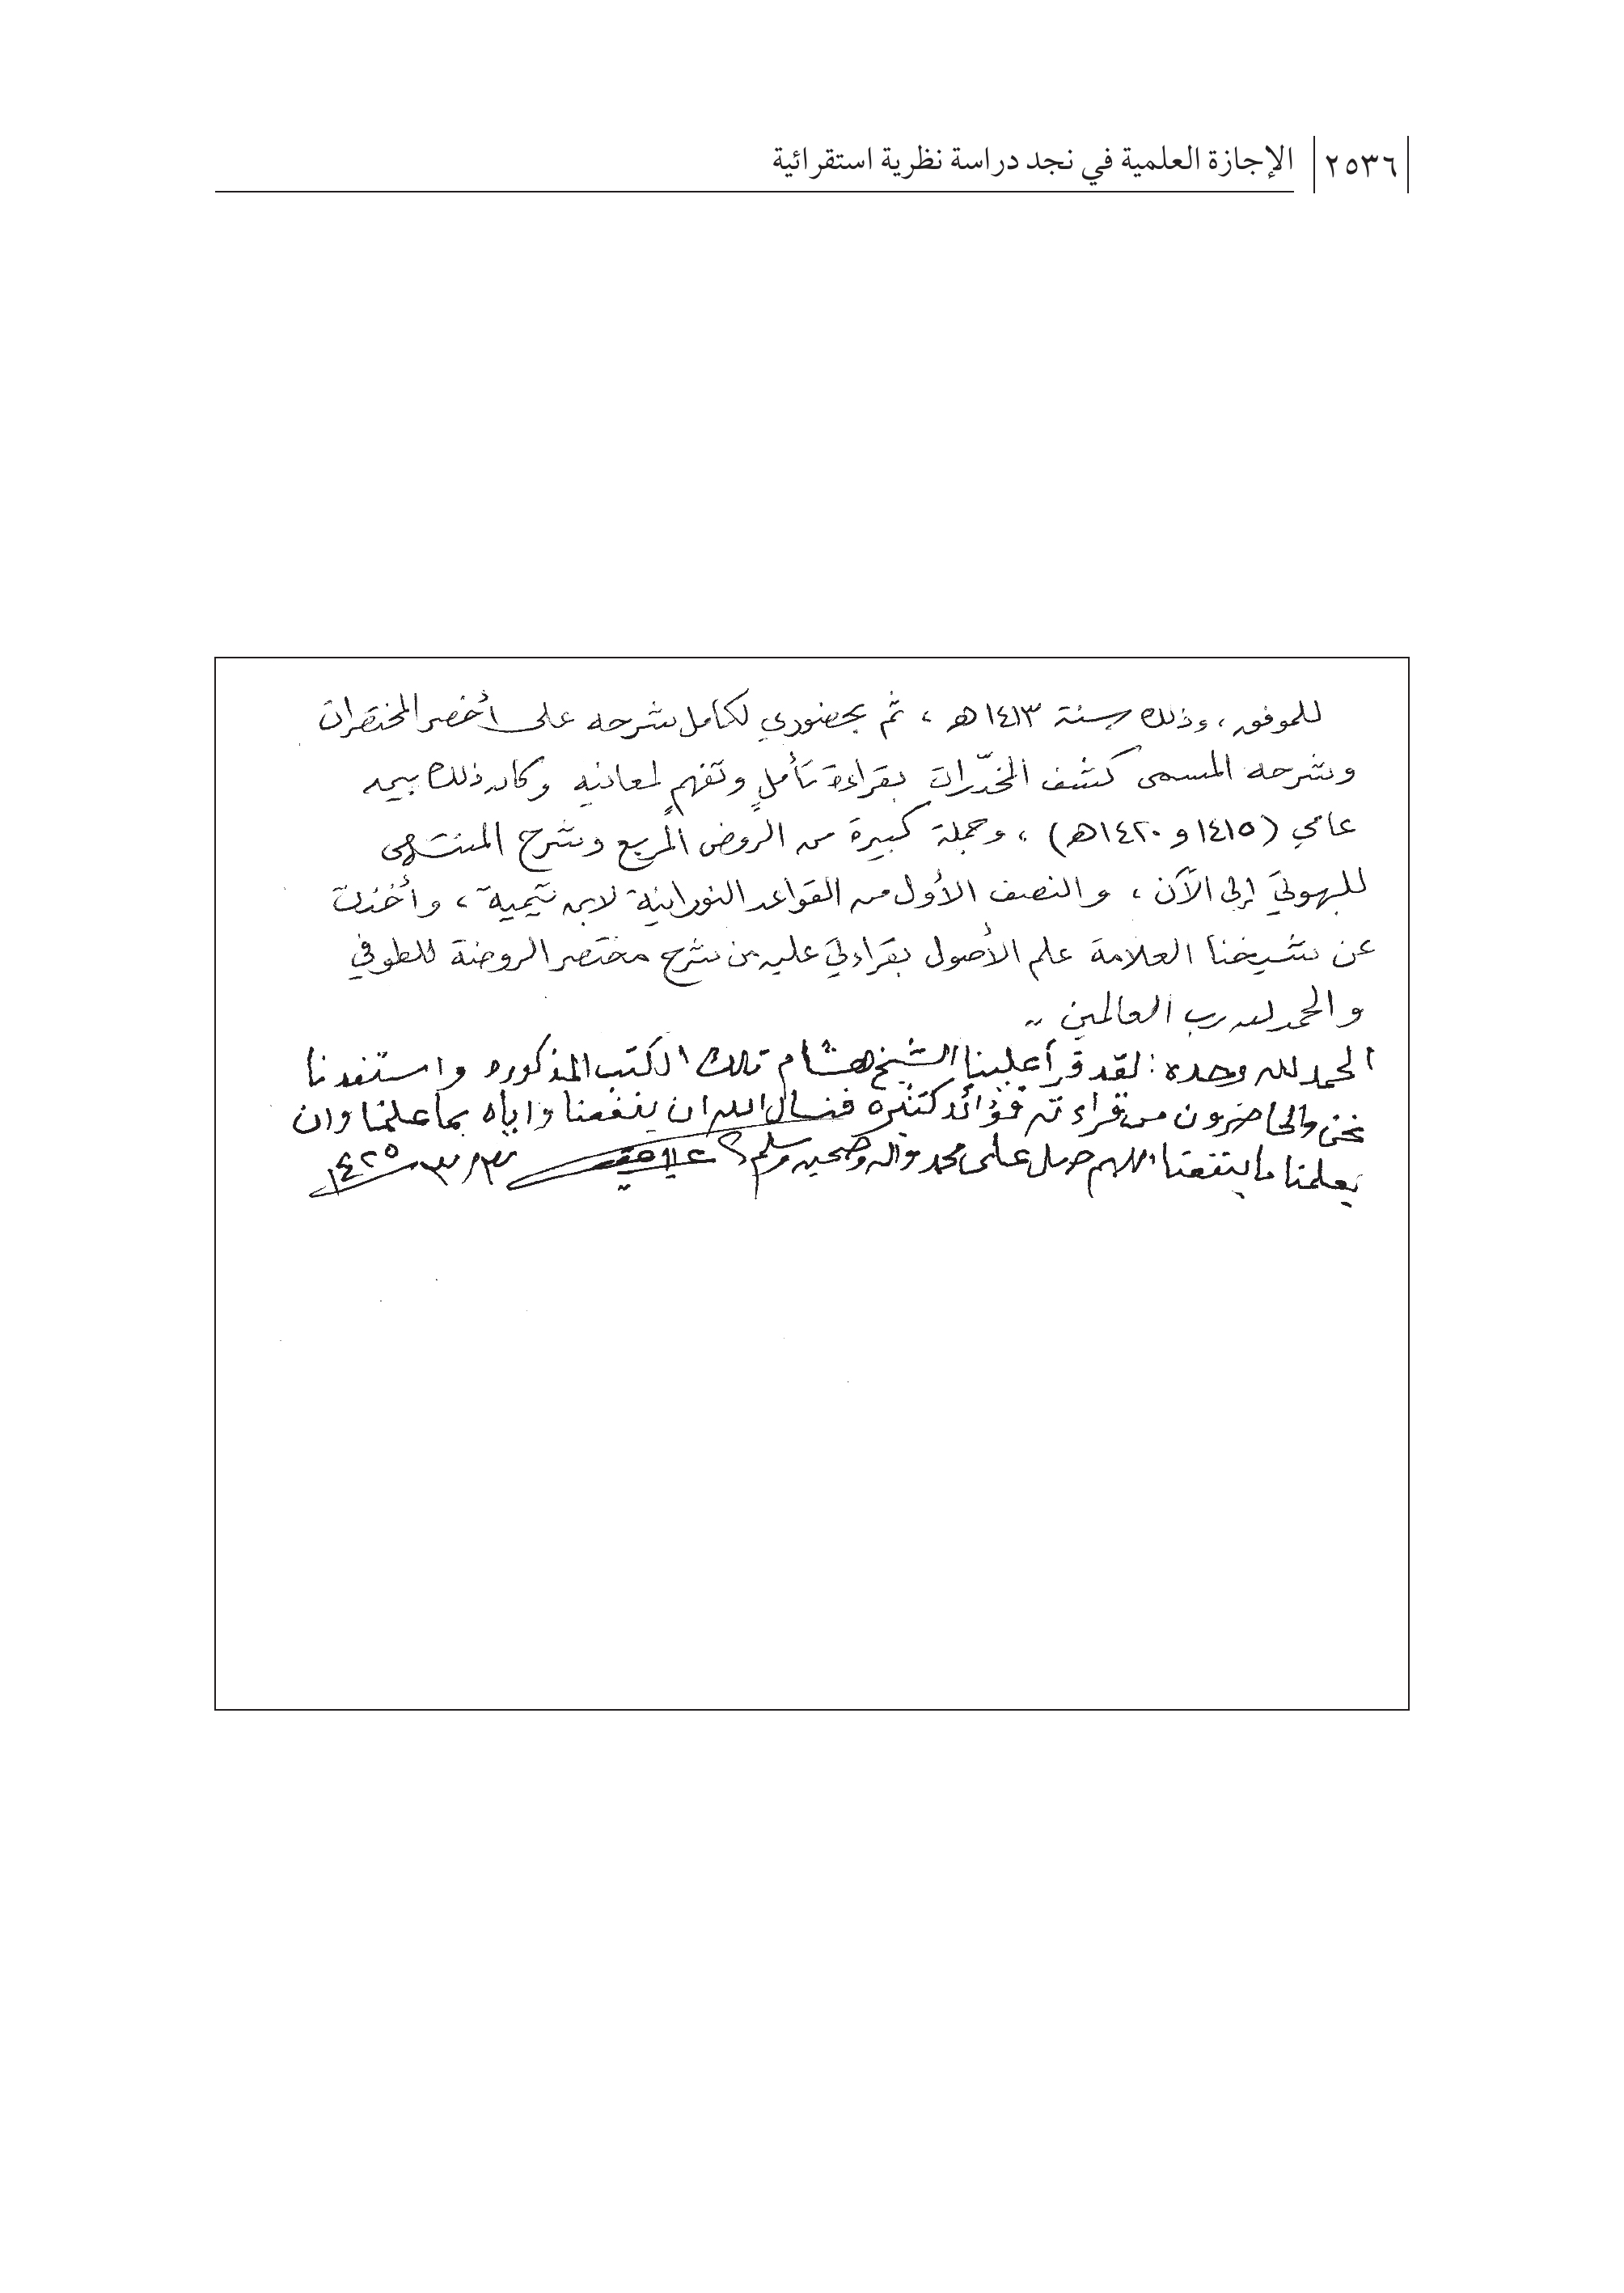 ٢٥٣٦ الإجازة العلمية في نجد دراسة نظرية استقرائية
للموفق، وذلك سنة ١٤١٣هـ، ثم بحضوري لكامل شرحه على أخصر المختصرات
وشرحه المسمى كشف المخدّرات بقراءة تأملٍ وتفهمٍ لمعانيه وكان ذلك بين
عامي (١٤١٥ و ١٤٢٠هـ)، وجملة كبيرة من الروض المربع وشرح المنتهى
للبهوتي إلى الآن، والنصف الأول من القواعد النورانية لابن تيمية، وأخذت
عن شيخنا العلامة علم الأصول بقراءتي عليه من شرح مختصر الروضة للطوفي
والحمد لله رب العالمين ..
الحمد لله وحده: لقد قرأ علينا الشيخ هشام تلك الكتب المذكوره واستفدنا
نحن والحاضرون من قراءته فوائد كثيره فنسال الله ان ينفعنا واياه بما علمنا وان
يعلمنا ما ينفعنا اللهم صل على محمد وآله وصحبه وسلم ١٤٢٥